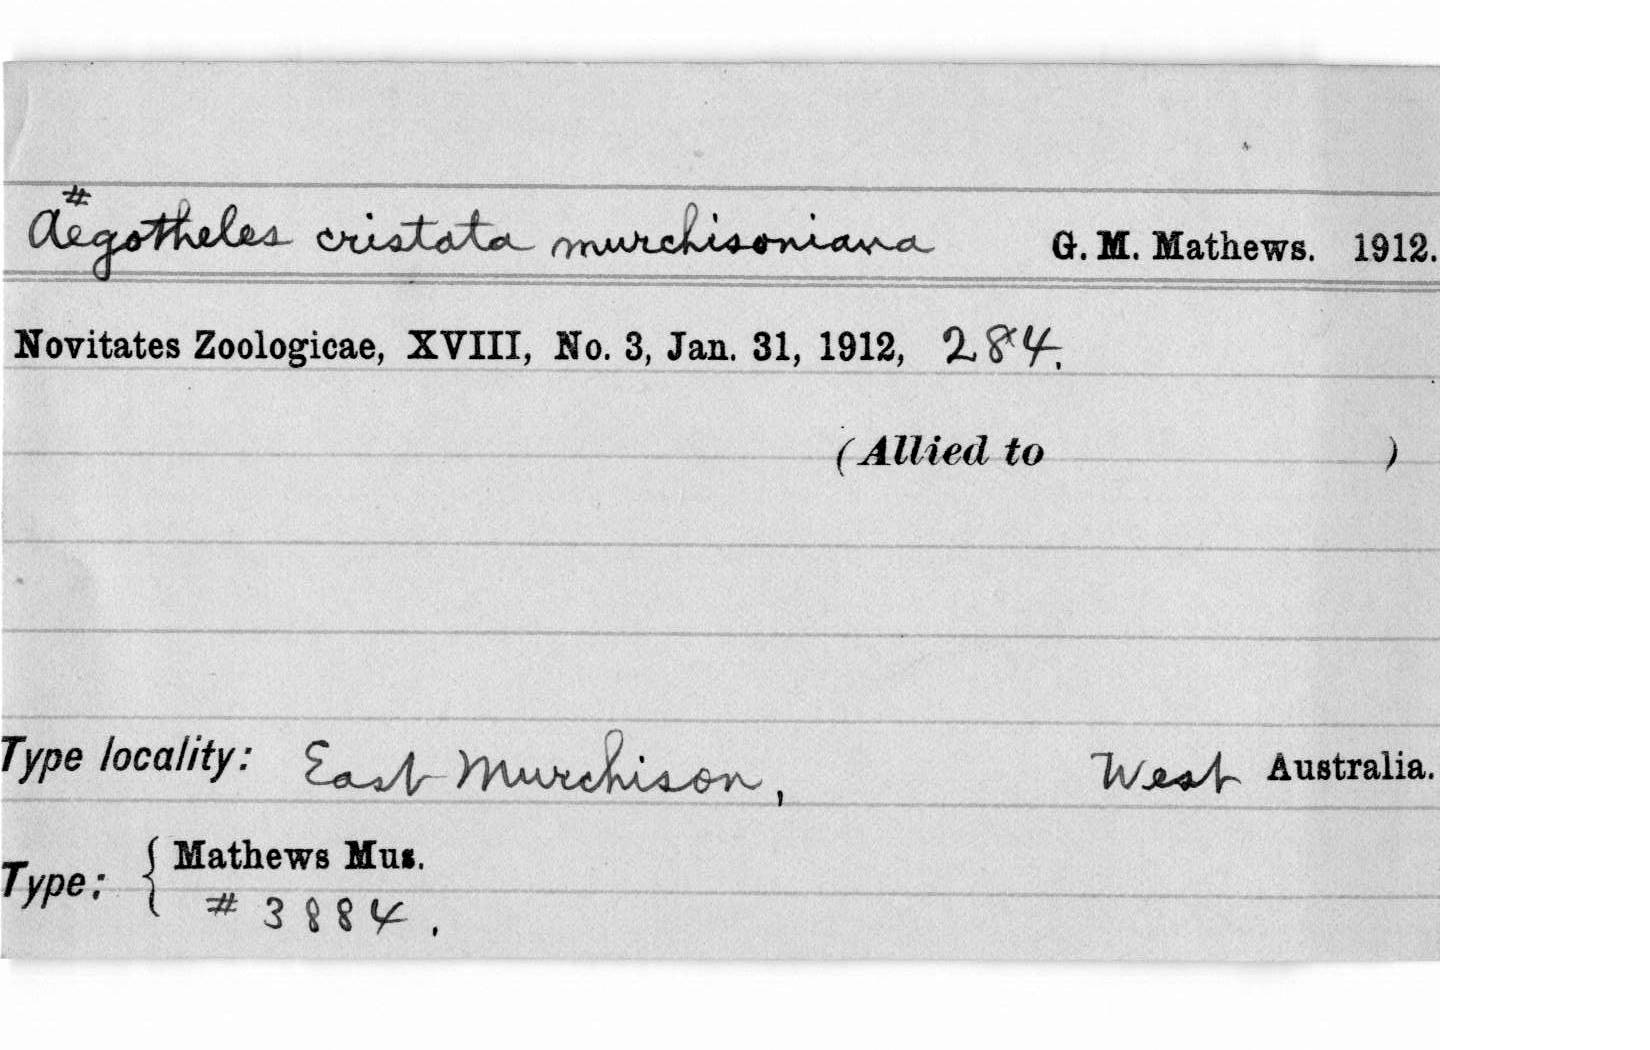 #
Aegotheles cristata murchisoniana G. M. Mathews. 1912.
Novitates Zoologicae, XVIII, No. 3, Jan. 31, 1912, 284.
(Allied to )
Type locality: East Murchison, West Australia.
Type: { Mathews Mus.
# 3884.